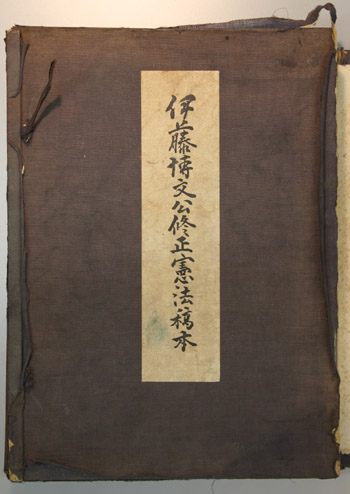 伊藤博文公修正憲法稿本